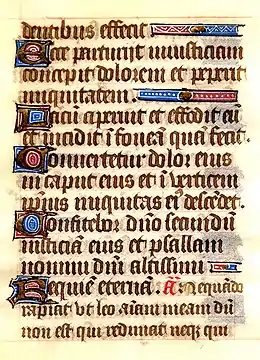 dentibus effecit
Ecce parturiit iniusticiam
concepit dolorem et peperit
iniquitatem
Lacum aperuit et effodit eū
et incidit ī foueā quā fecit
Conuertetur dolor eius
in caput eius et ī verticem
ipius iniquitas eī descēdet.
Confitebor dn̄o secundū
iusticiā eius et psallam
nomini dn̄i altissimi
Requiē eternā. ā Nequādo
rapiat vt leo aīam meam dū
non est qui redimat neq; qui